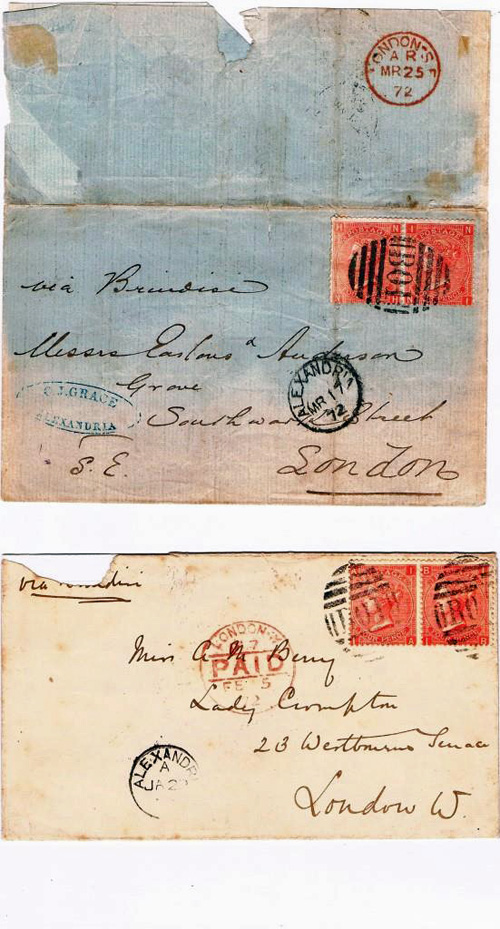 LONDON·S.E
A R
MR 25
72
N N I N
POSTAGE POSTAGE
B01
via Brindisi
Messrs Eastons & Anderson
Grove
Southwark Street
S. E.
London
ALEXANDRIA
A
MR 17
72
C.J.GRACE
ALEXANDRIA
via Brindisi
LONDON·W
7
PAID
FE 5
Miss A. M. Berry
Lady Crompton
23 Westbourne Terrace
London W.
ALEXANDRI
A
JA 2
FOUR PENCE
B01